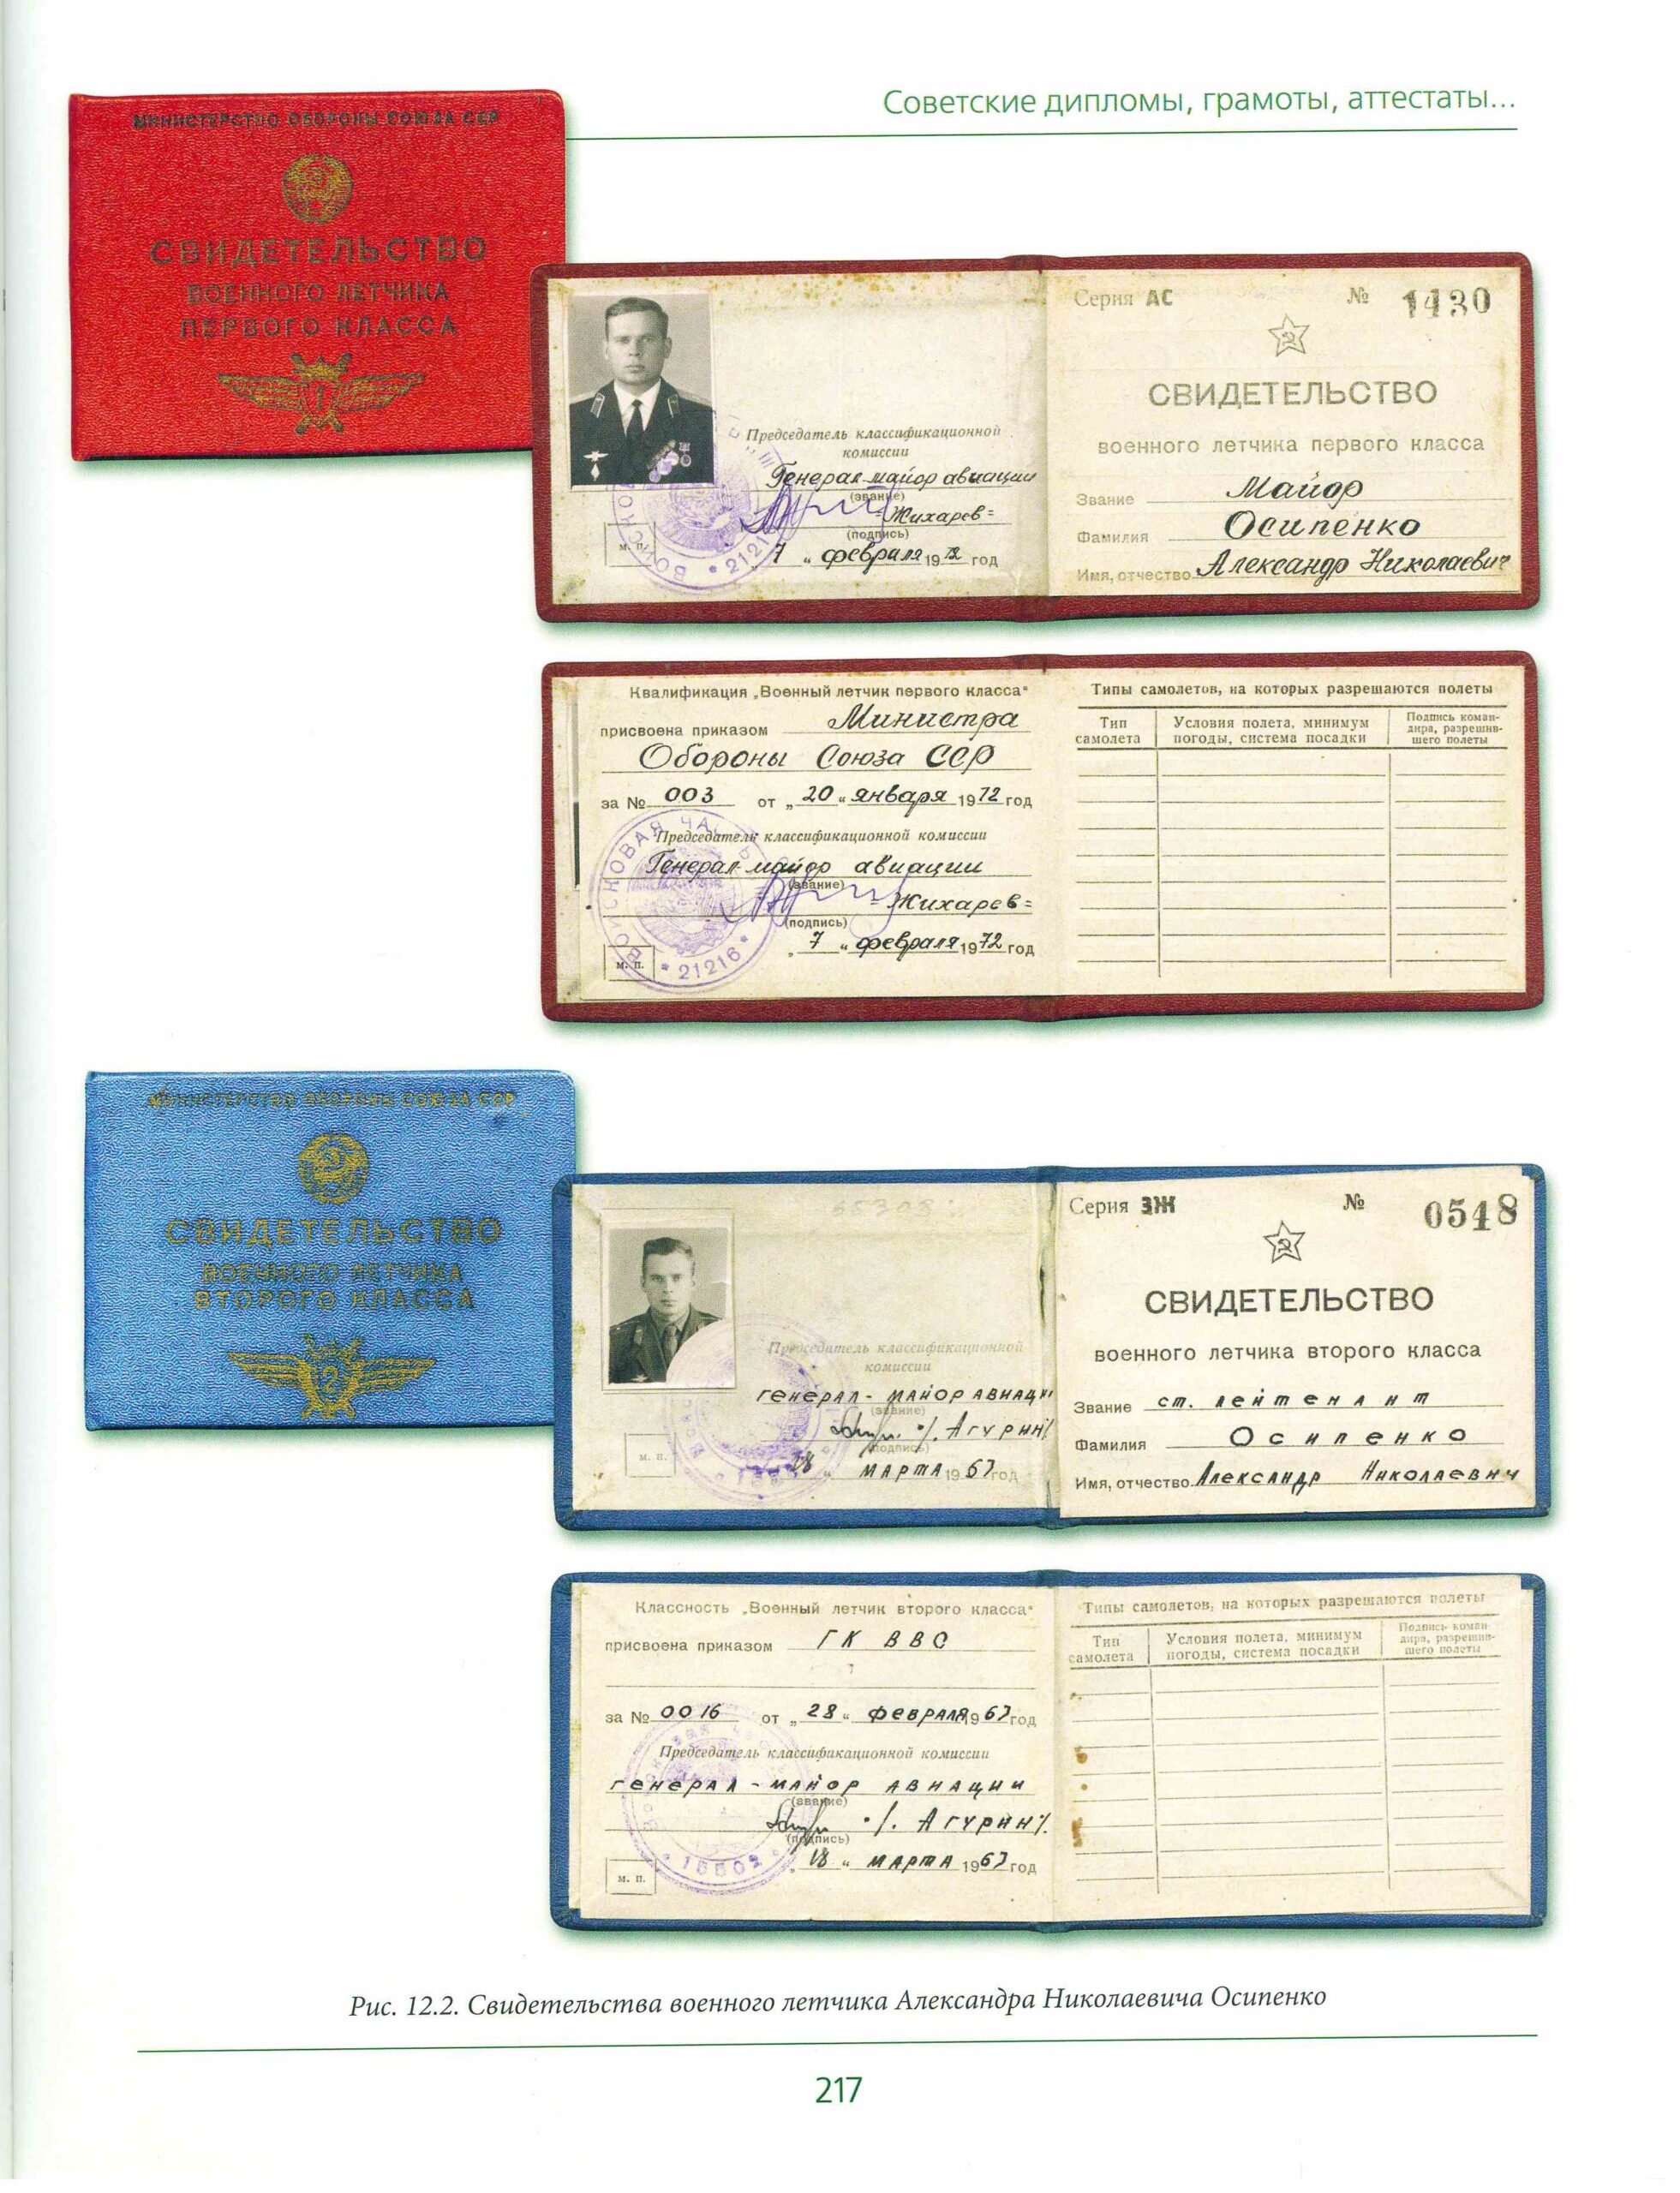 Советские дипломы, грамоты, аттестаты...
МИНИСТЕРСТВО ОБОРОНЫ СОЮЗА ССР
СВИДЕТЕЛЬСТВО
ВОЕННОГО ЛЕТЧИКА
ПЕРВОГО КЛАССА
1
Председатель классификационной
комиссии
Генерал-майор авиации
(звание)
=Жихарев=
(подпись)
м. п.
7 " февраля 1972 год
21216
Серия АС № 1430
СВИДЕТЕЛЬСТВО
военного летчика первого класса
Звание Майор
Фамилия Осипенко
Имя, отчество Александр Николаевич
Квалификация „Военный летчик первого класса"
присвоена приказом Министра
Обороны Союза ССР
за № 003 от „20" января 1972 год
Председатель классификационной комиссии
Генерал-майор авиации
(звание)
=Жихарев=
(подпись)
„7" февраля 1972 год
м. п.
ВОЙСКОВАЯ ЧАСТЬ * 21216 *
Типы самолетов, на которых разрешаются полеты
Тип самолета
Условия полета, минимум погоды, система посадки
Подпись коман-дира, разрешив-шего полеты
МИНИСТЕРСТВО ОБОРОНЫ СОЮЗА ССР
СВИДЕТЕЛЬСТВО
ВОЕННОГО ЛЕТЧИКА
ВТОРОГО КЛАССА
2
Председатель классификационной
комиссии
генерал-майор авиации
(звание)
./. Агурин ./.
(подпись)
м. п.
18 " марта 1967 год
Серия ЗЖ № 0548
СВИДЕТЕЛЬСТВО
военного летчика второго класса
Звание ст. лейтенант
Фамилия Осипенко
Имя, отчество Александр Николаевич
Классность „Военный летчик второго класса"
присвоена приказом ГК ВВС
за № 0016 от „28" февраля 1967 год
Председатель классификационной комиссии
генерал-майор авиации
(звание)
./. Агурин ./.
(подпись)
„18" марта 1967 год
м. п.
Типы самолетов, на которых разрешаются полеты
Тип самолета
Условия полета, минимум погоды, система посадки
Подпись коман-дира, разрешив-шего полеты
Рис. 12.2. Свидетельства военного летчика Александра Николаевича Осипенко
217